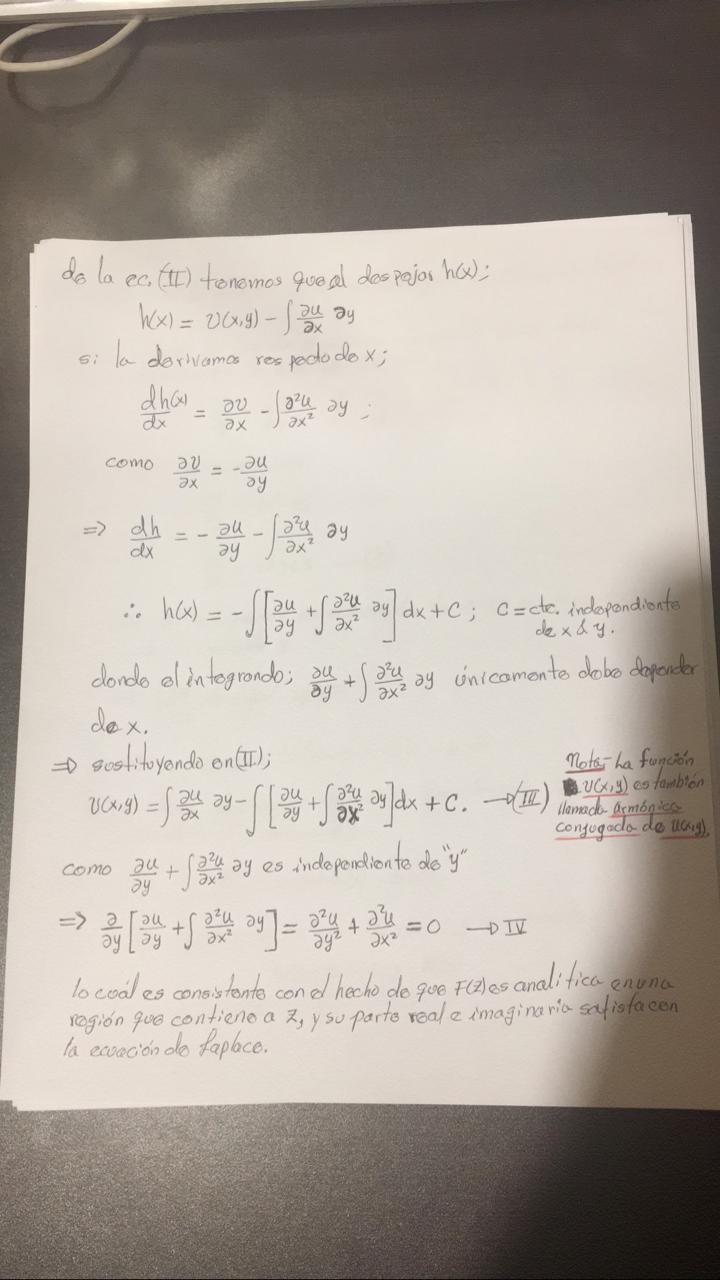 de la ec. (II) tenemos que al despejar h(x);
h(x) = v(x,y) - ∫ ∂u/∂x ∂y
si la derivamos respecto de x;
dh(x)/dx = ∂v/∂x - ∫ ∂²u/∂x² ∂y ;
como ∂v/∂x = - ∂u/∂y
=> dh/dx = - ∂u/∂y - ∫ ∂²u/∂x² ∂y
∴ h(x) = - ∫ [∂u/∂y + ∫ ∂²u/∂x² ∂y] dx + C ; C = cte. independiente
de x & y.
donde el integrando; ∂u/∂y + ∫ ∂²u/∂x² ∂y únicamente debe depender
de x.
=> sustituyendo en (II);
v(x,y) = ∫ ∂u/∂x ∂y - ∫ [∂u/∂y + ∫ ∂²u/∂x² ∂y] dx + C. → (III)
Nota- La función
v(x,y) es también
llamada armónica
conjugada de u(x,y).
como ∂u/∂y + ∫ ∂²u/∂x² ∂y es independiente de "y"
=> ∂/∂y [∂u/∂y + ∫ ∂²u/∂x² ∂y] = ∂²u/∂y² + ∂²u/∂x² = 0 → IV
lo cuál es consistente con el hecho de que F(z) es analítica en una
región que contiene a z, y su parte real e imaginaria satisfacen
la ecuación de Laplace.